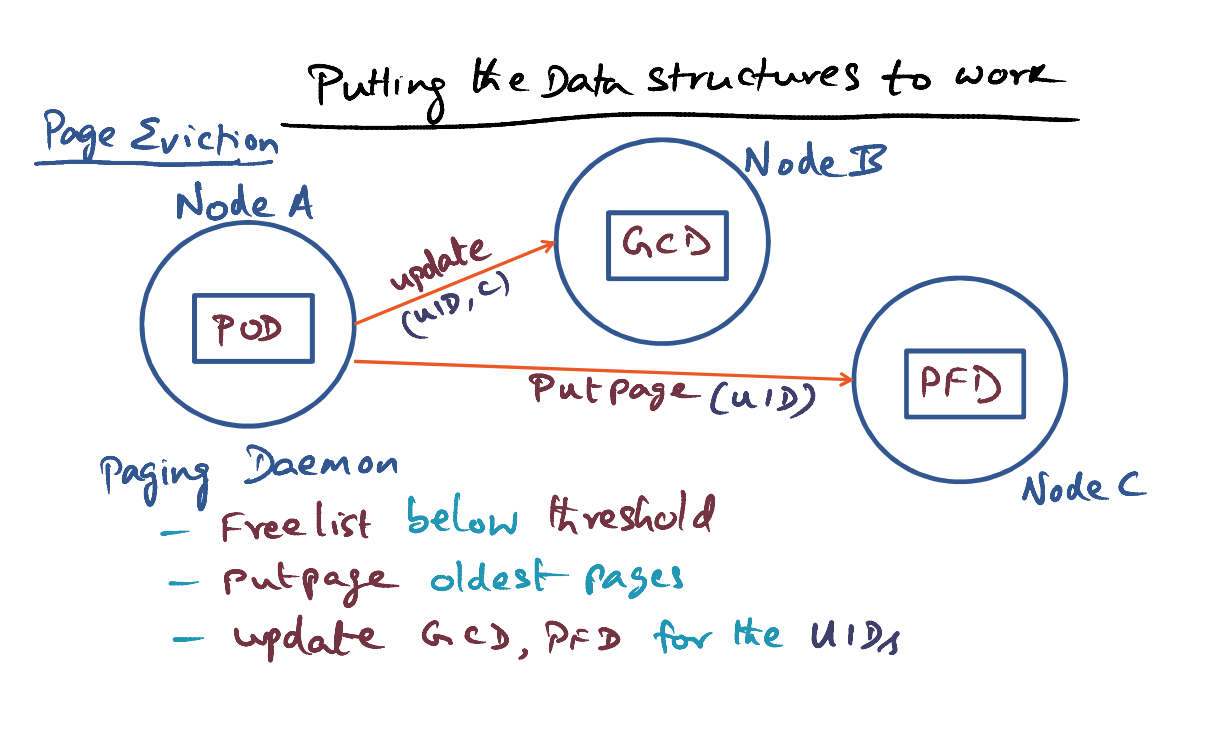 Putting the Data structures to work
Page Eviction
Node A
Node B
GCD
update
(UID, C)
POD
Putpage (UID)
PFD
Node C
Paging Daemon
- Freelist below threshold
- putpage oldest pages
- update GCD, PFD for the UIDs